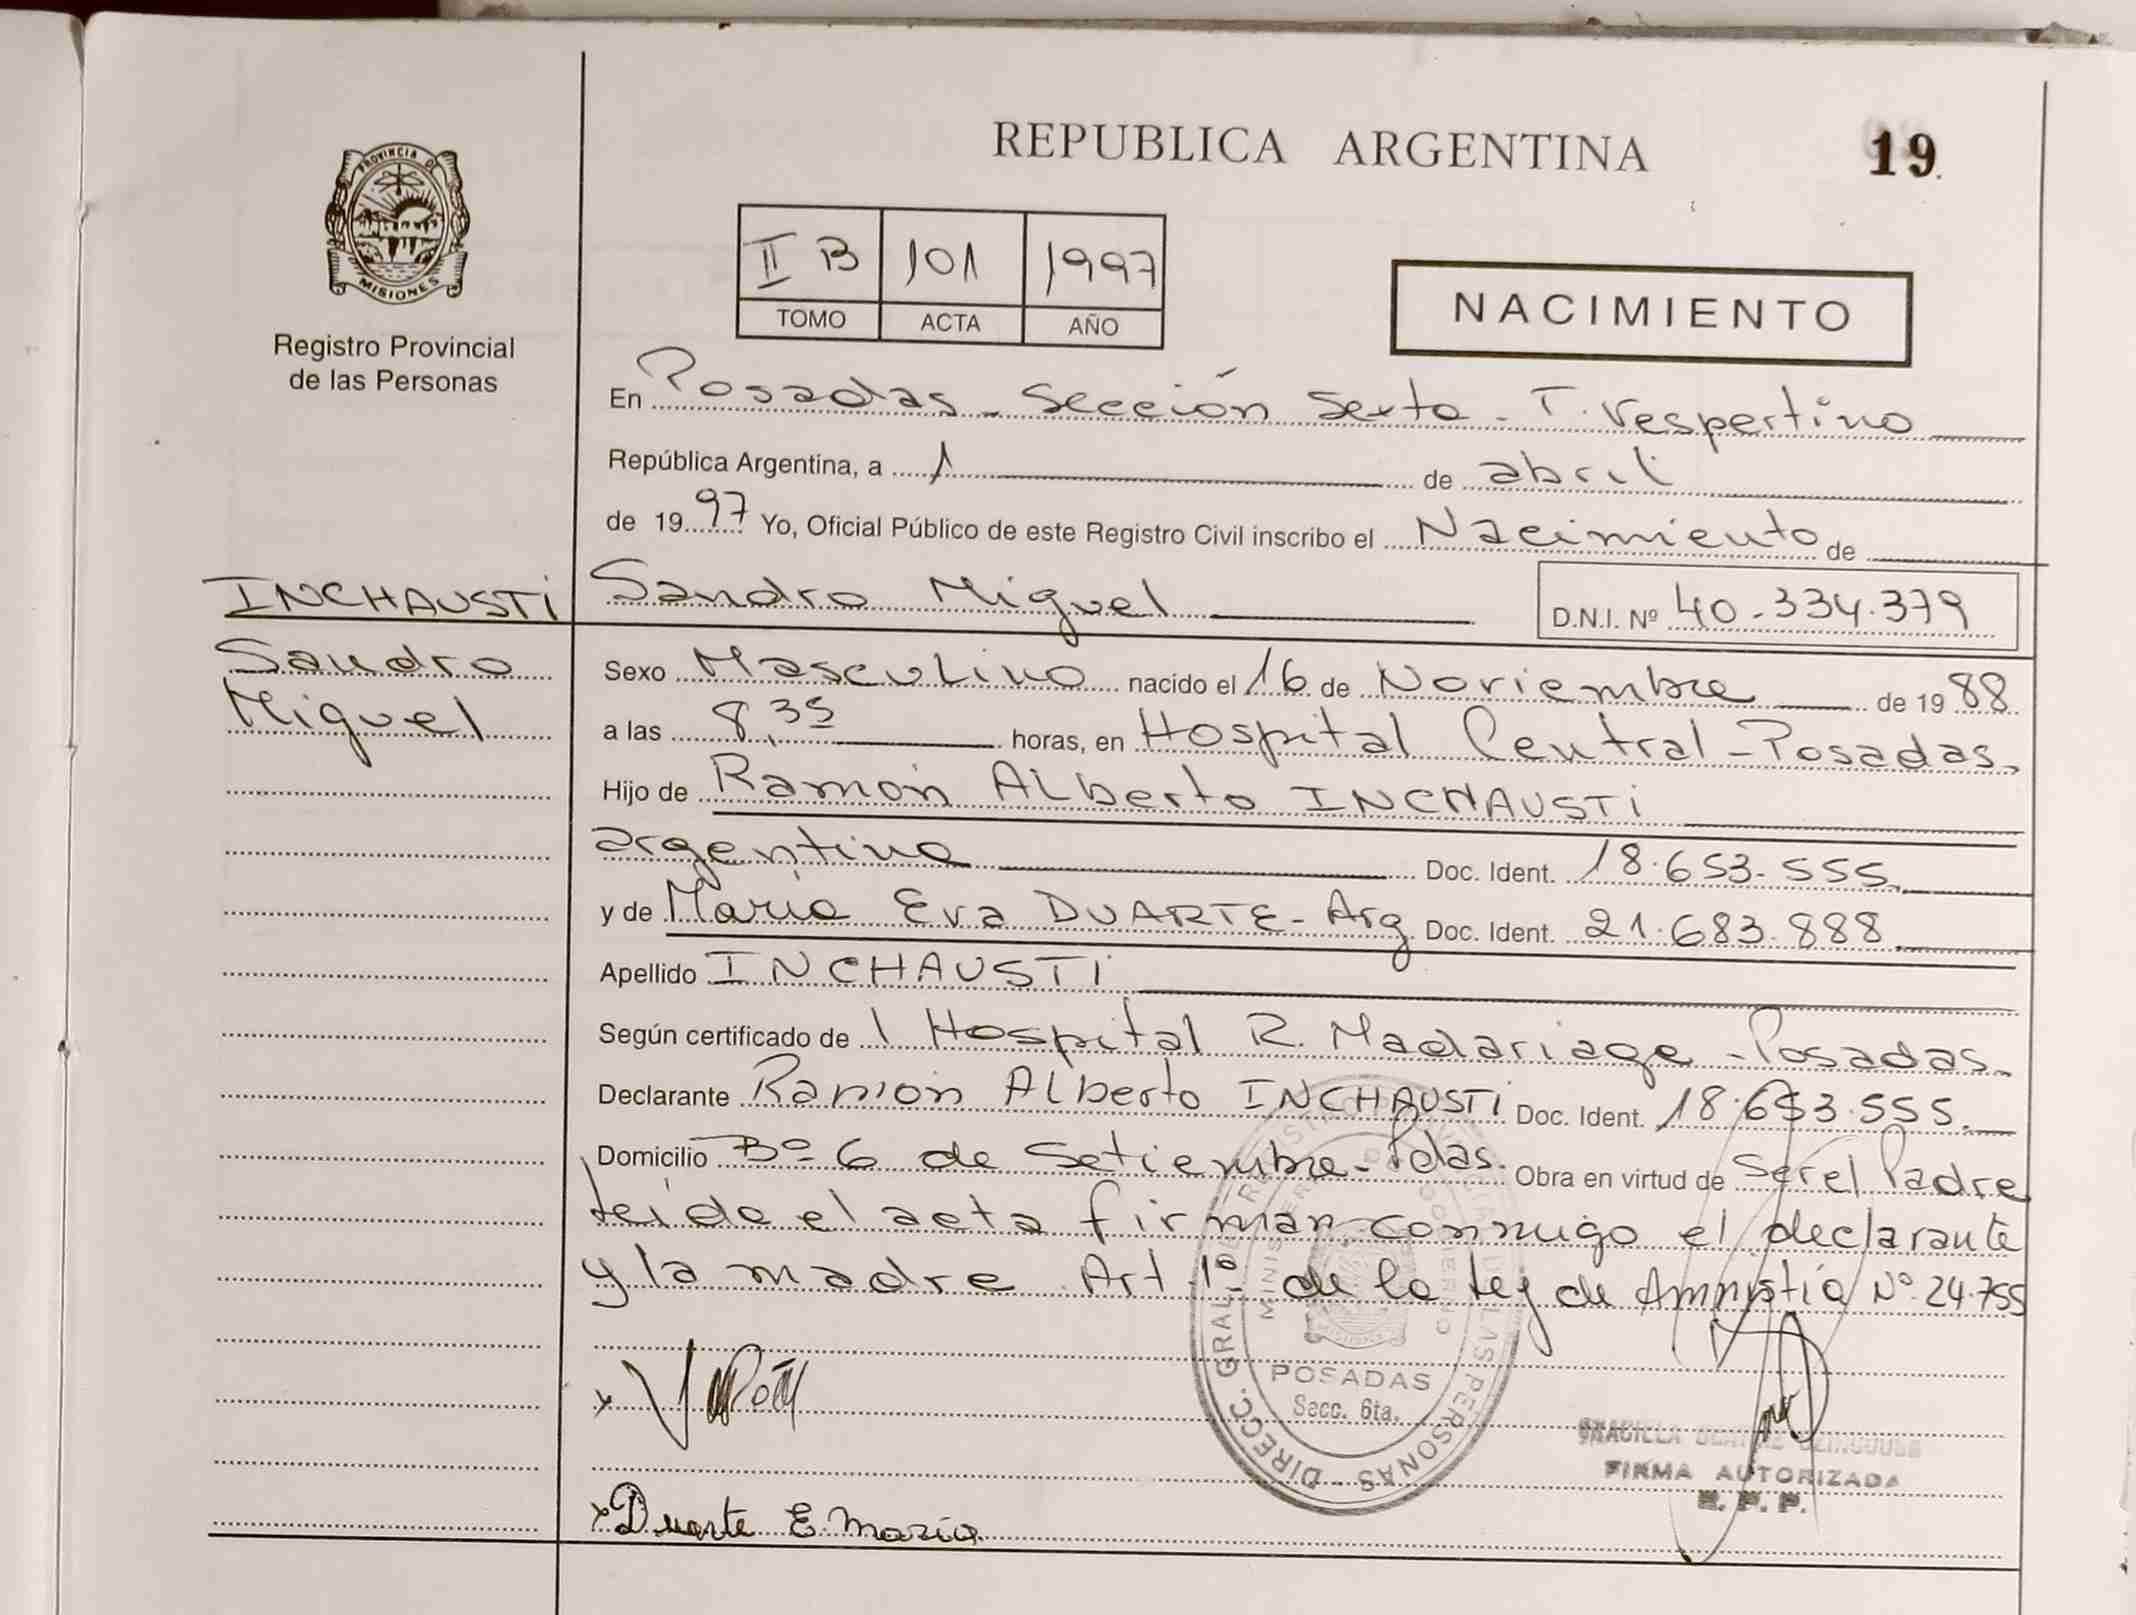 REPUBLICA ARGENTINA
19
PROVINCIA DE
MISIONES
Registro Provincial
de las Personas
II B 101 1997
TOMO ACTA AÑO
NACIMIENTO
En Posadas - Sección Sexta - T. Vespertino
República Argentina, a 1 de abril
de 1997 Yo, Oficial Público de este Registro Civil inscribo el Nacimiento de
INCHAUSTI
Sandro
Miguel
Sandro Miguel D.N.I. Nº 40.334.379
Sexo Masculino nacido el 16 de Noviembre de 1988
a las 8,35 horas, en Hospital Central - Posadas.
Hijo de Ramón Alberto INCHAUSTI
argentino Doc. Ident. 18.653.555.
y de María Eva DUARTE - Arg. Doc. Ident. 21.683.888
Apellido INCHAUSTI
Según certificado de l Hospital R. Madariaga - Posadas.
Declarante Ramón Alberto INCHAUSTI Doc. Ident. 18.653.555.
Domicilio Bº 6 de Setiembre - Pdas. Obra en virtud de Ser el Padre
leída el acta firman conmigo el declarante
y la madre Art. 1º de la Ley de Amnistía Nº 24.755
POSADAS
Secc. 6ta.
FIRMA AUTORIZADA
R. P. P.
Duarte E. María